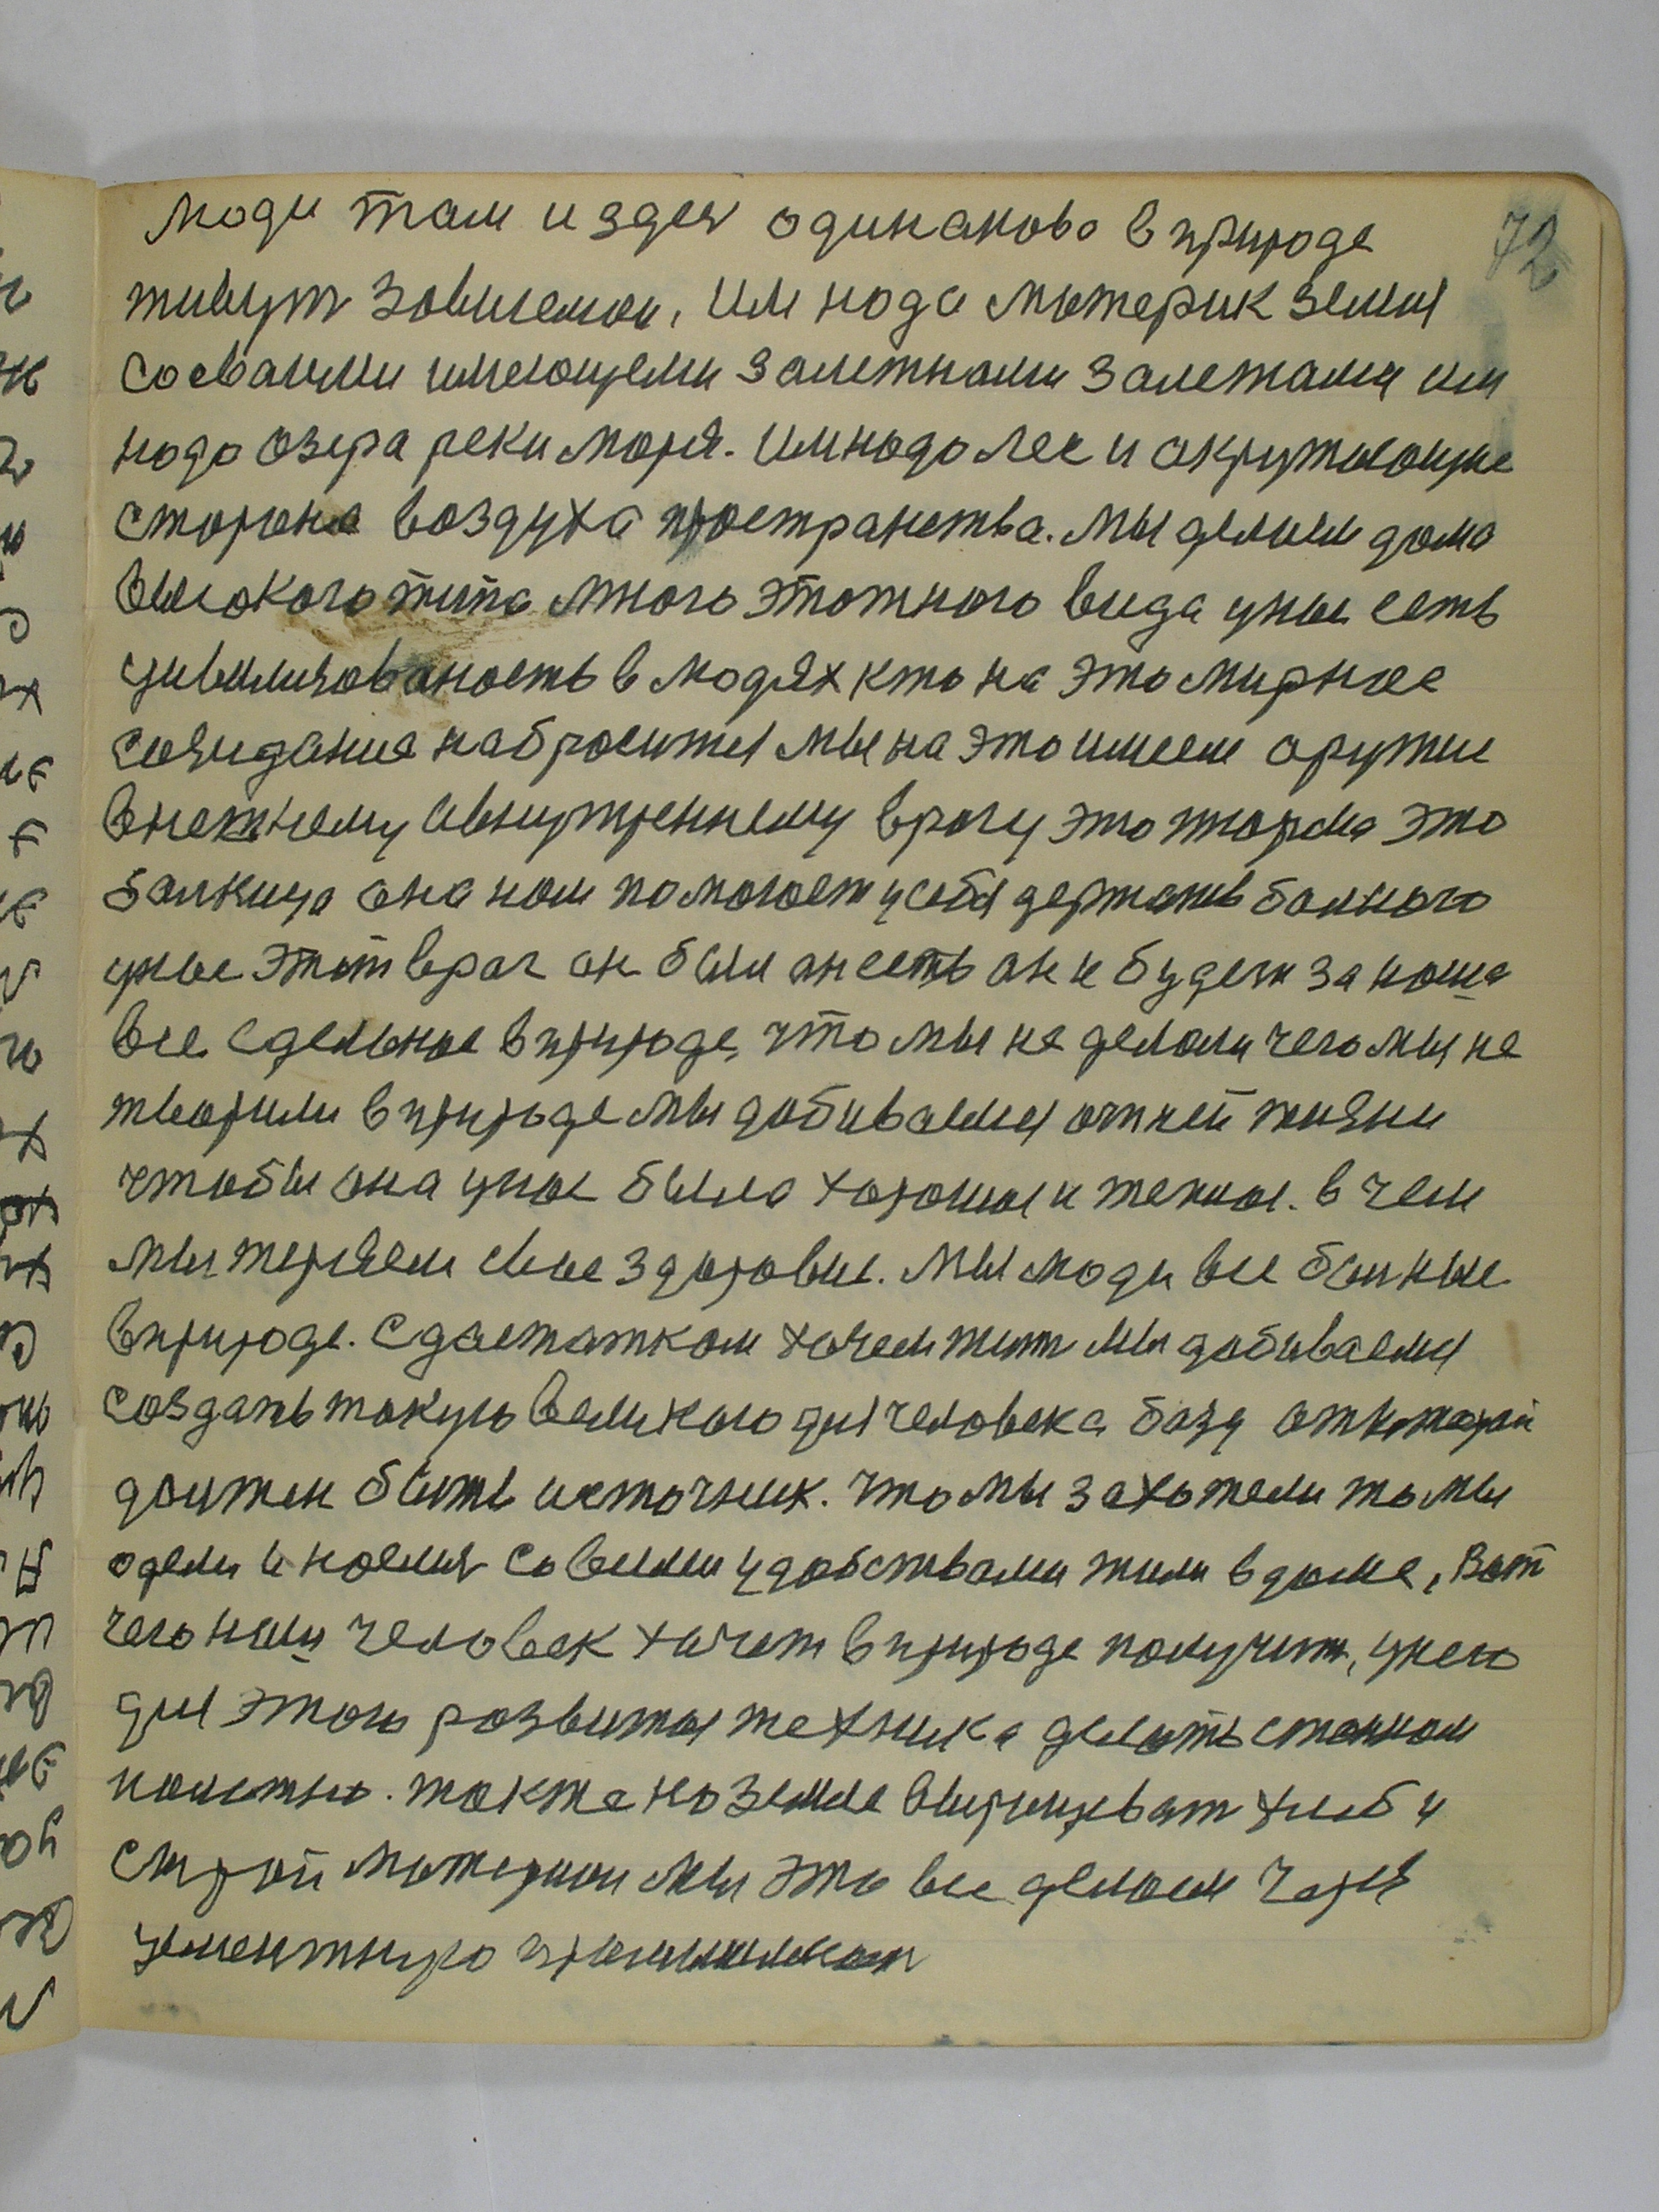 72
люди там и здея одинаково в природе
живут зависемои, им нада материк земля
со сваими имеющеми залежнами залежами им
нада озера реки моря. им надо лес и акружающие
старона воздуха пространства. мы делаем дома
высокого типа много этажного вида у нас есть
цивилизованость в людях кто на это мирное
созидание набросится мы на это имеем аружие
внешнему ивнутреннему врагу это тюрма это
балница она нам помогает усебя держать балного
у нас этот враг он был он есть он и будеть за наша
все сделаное в природе, что мы не делали чего мы не
творили в природе мы дабиваемся от ней жизни
чтобы она у нас была харошая и теплая. в чем
мы теряем свое здоровие. мы люди все балные
в природе. с дастатком хочем жить мы дабиваемся
создать такую великаго для человека базу от которай
должен быть источник. что мы захотели то мы
одели и наелися совсеми удобствами жили в доме, Вот
чего наш человек хочет в природе получить, у него
для этого развитая техника делать станком
полстью. также на земле выращиват хлеб и
сырой материал мы это все делаем через
цементную